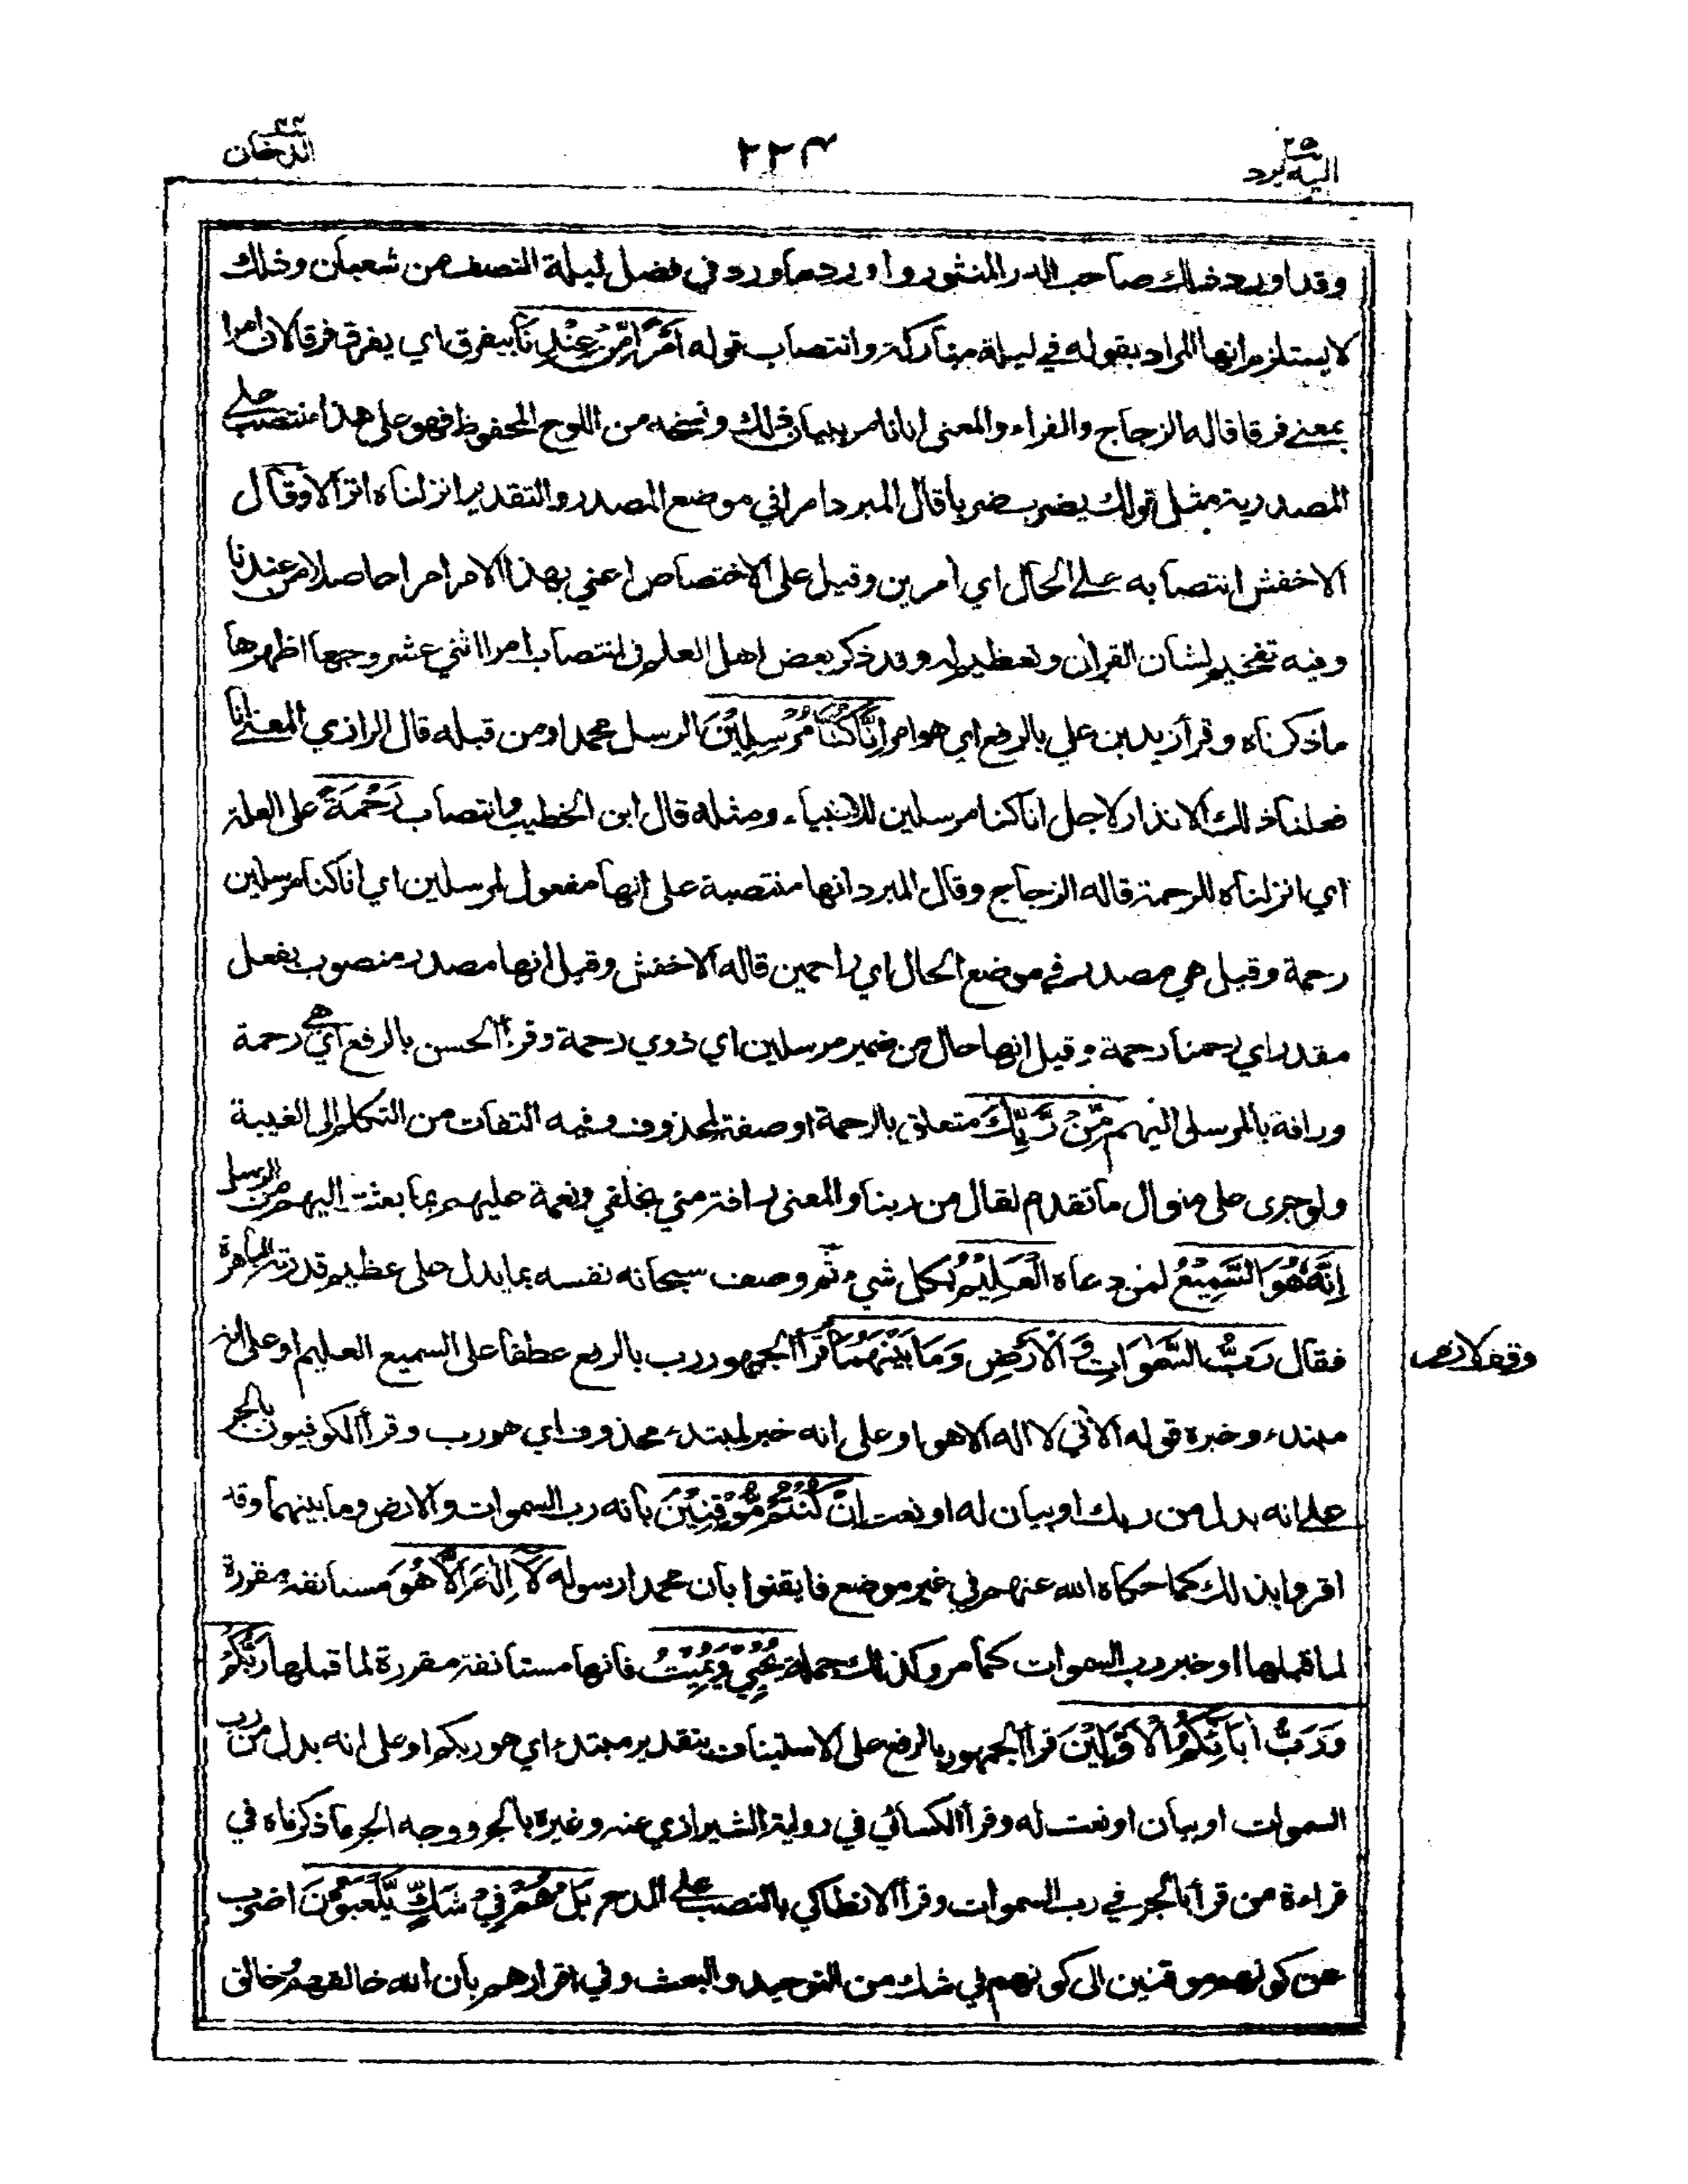 اليه يرد ٢٥
٢٢٤
الدخان ٤٤
وقد اورد ذلك صاحب الدر المنثور واورد ما ورد في فضل ليلة النصف من شعبان وذلك
لا يستلزم انها المراد بقوله في ليلة مباركة وانتصاب قوله اَمْرًا مِّنْ عِنْدِنَا بيفرق اي يفرق فرقا لان امرا
بمعنى فرقا قاله الزجاج والفراء والمعنى انا نامر ببيان ذلك ونسخه من اللوح المحفوظ فهو على هذا منتصب على
المصدرية مثل قولك يضرب ضربا قال المبرد امرا في موضع المصدر والتقدير انزلناه انزالا وقال
الاخفش انتصابه على الحال اي امرين وقيل على الاختصاص اعني بهذا الامر امرا حاصلا من عندنا
وفيه تفخيم لشان القران وتعظيم له وقد ذكر بعض اهل العلم في انتصاب امرا اثني عشر وجها اظهرها
ما ذكرناه وقرأ زيد بن علي بالرفع اي هو امر اِنَّا كُنَّا مُرْسِلِيْنَ الرسل محمدا ومن قبله قال الرازي المعنى انا
فعلنا ذلك الانذار لاجل انا كنا مرسلين للانبياء ومثله قال ابن الخطيب وانتصاب رَحْمَةً على العلة
اي انزلناه للرحمة قاله الزجاج وقال المبرد انها منتصبة على انها مفعول لمرسلين اي انا كنا مرسلين
رحمة وقيل هي مصدر في موضع الحال اي راحمين قاله الاخفش وقيل انها مصدر منصوب بفعل
مقدر اي رحمنا رحمة وقيل انها حال من ضمير مرسلين اي ذوي رحمة وقرأ الحسن بالرفع اي هي رحمة
ورافة بالمرسل اليهم مِّنْ رَّبِّكَ متعلق بالرحمة او صفة لمحذوف وفيه التفات من التكلم الى الغيبة
ولو جرى على منوال ما تقدم لقال من ربنا والمعنى رافة مني بخلقي ونعمة عليهم بما بعثت اليهم من الرسل
اِنَّهٗ هُوَ السَّمِيْعُ لمن دعاه الْعَلِيْمُ بكل شيء ثم وصف سبحانه نفسه بما يدل على عظيم قدرته الباهرة
فقال رَبِّ السَّمٰوَاتِ وَ الْاَرْضِ وَمَا بَيْنَهُمَا قرأ الجمهور رب بالرفع عطفا على السميع العليم او على انه
وقف لازم
مبتدء وخبره قوله الاتي لا اله الا هو او على انه خبر لمبتدء محذوف اي هو رب وقرأ الكوفيون بالجر
على انه بدل من ربك او بيان له او نعت اِنْ كُنْتُمْ مُّوْقِنِيْنَ بانه رب السموات والارض وما بينهما وقد
اقروا بذلك كما حكاه الله عنهم في غير موضع فايقنوا بان محمدا رسوله لَآ اِلٰهَ اِلَّا هُوَ مستانفة مقررة
لما قبلها او خبر رب السموات كما مر وكذلك جملة يُحْيِيْ وَيُمِيْتُ فانها مستانفة مقررة لما قبلها رَبُّكُمْ
وَرَبُّ اٰبَآئِكُمُ الْاَوَّلِيْنَ قرأ الجمهور بالرفع على الاستيناف بتقدير مبتدء اي هو ربكم او على انه بدل من رب
السموات او بيان او نعت له وقرأ الكسائي في رواية الشيرازي عنه وغيره بالجر ووجه الجر ما ذكرناه في
قراءة من قرأ بالجر في رب السموات وقرأ الانطاكي بالنصب على المدح بَلْ هُمْ فِيْ شَكٍّ يَّلْعَبُوْنَ اضرب
عن كونهم موقنين الى كونهم في شك من التوحيد والبعث وفي اقرارهم بان الله خالقهم وخالق